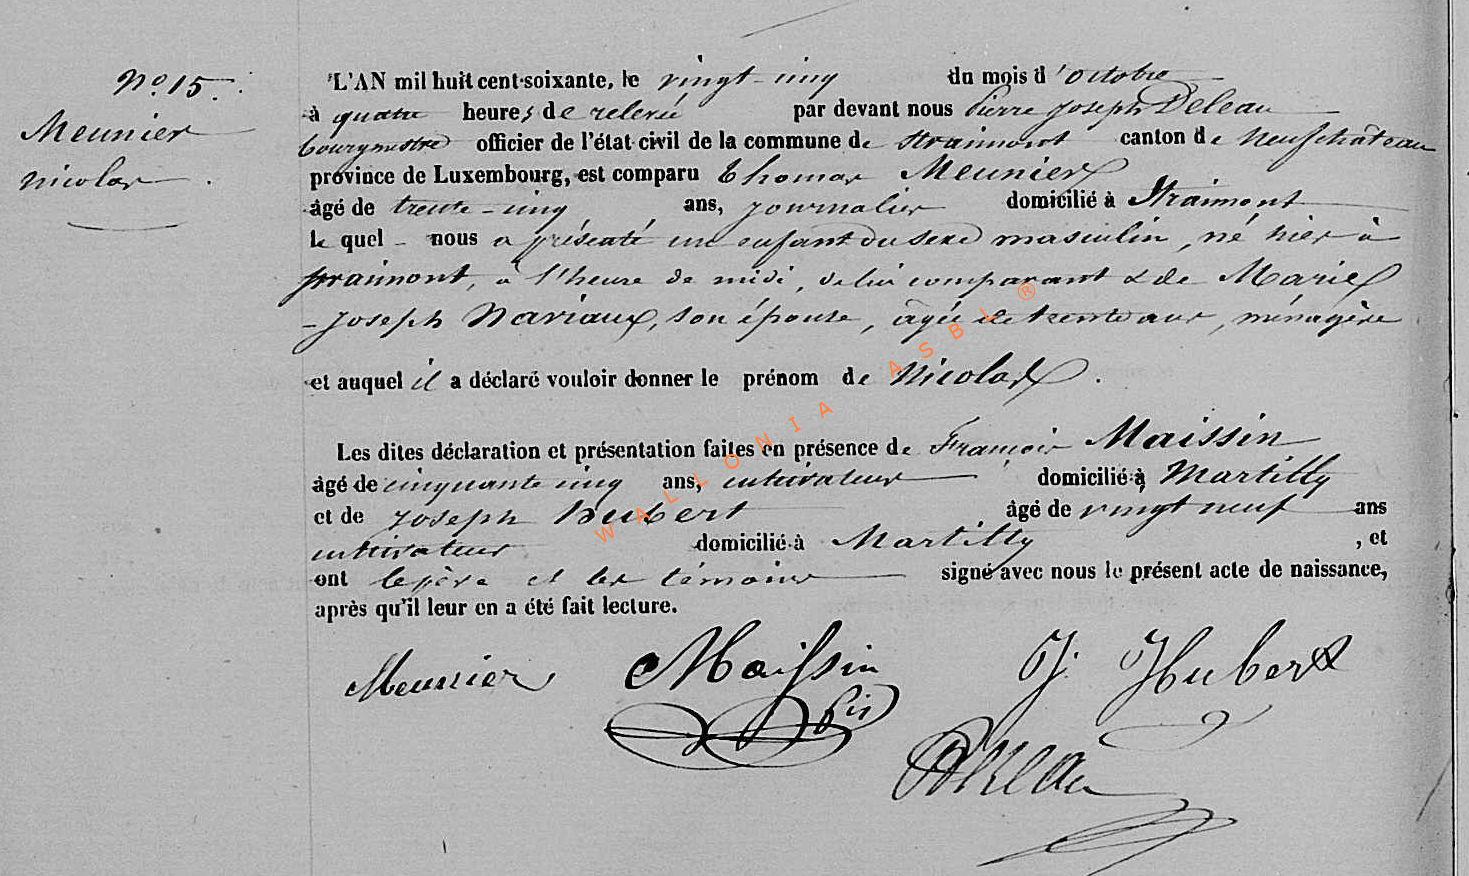 N° 15.
Meunier
nicolas.
L'AN mil huit cent soixante, le vingt-cinq du mois d'octobre
à quatre heures de relevée par devant nous Pierre Joseph Deleau
bourgmestre officier de l'état civil de la commune de Straimont canton de Neufchâteau
province de Luxembourg, est comparu Thomas Meunier
âgé de trente-cinq ans, journalier domicilié à Straimont
le quel nous a présenté un enfant du sexe masculin, né hier à
Straimont, à l'heure de midi, de lui comparant & de Marie
-Joseph Nariaux, son épouse, âgée de trente ans, ménagère
et auquel il a déclaré vouloir donner le prénom de Nicolas.
Les dites déclaration et présentation faites en présence de François Maissin
âgé de cinquante cinq ans, cultivateur domicilié à Martilly
et de Joseph hubert âgé de vingt neuf ans
cultivateur domicilié à Martilly, et
ont le père et les témoins signé avec nous le présent acte de naissance,
après qu'il leur en a été fait lecture.
Meunier Maissin J. Hubert
Deleau
WALLONIA ASBL ®